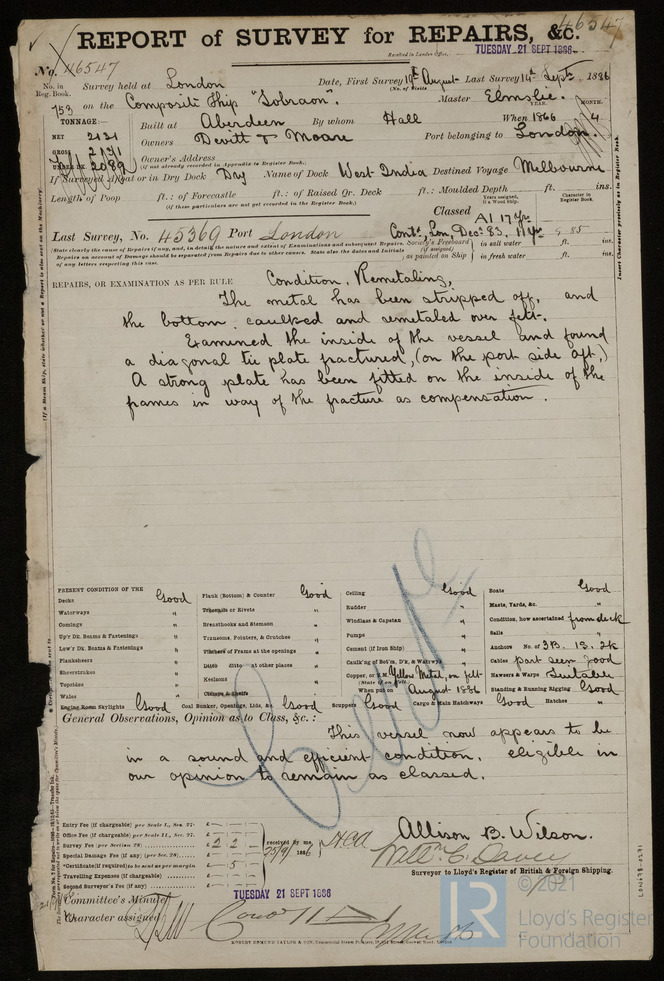 46547
REPORT of SURVEY for REPAIRS, &c.
Received in London Office, TUESDAY 21 SEPT 1886
No. 46547
No. in Reg. Book. Survey held at London Date, First Survey 10th August Last Survey 14th Septr 1886
(No. of Visits)
753 on the Composite Ship "Sobraon". Master Elmslie.
TONNAGE:— YEAR. MONTH.
NET 2131 Built at Aberdeen By whom Hall When 1866 4
GROSS 2131 Owners Devitt & Moore Port belonging to London.
UNDER DK. 2089 Owner's Address
(if not already recorded in Appendix to Register Book.)
If Surveyed Afloat or in Dry Dock Dry Name of Dock West India Destined Voyage Melbourne
Length of Poop ft.: of Forecastle ft.: of Raised Qr. Deck ft.: Moulded Depth ft. ins.
(if these particulars are not yet recorded in the Register Book.)
Years assigned, if a Wood Ship. Character in Register Book.
Classed A1 17 yrs
Last Survey, No. 45369 Port London Contd, Lon Decr 83. 11 yrs 9 85
(State clearly the cause of Repairs if any, and, in detail, the nature and extent of Examinations and subsequent Repairs.
Repairs on account of Damage should be separated from Repairs due to other causes. State also the dates and initials
of any letters respecting this case.
Society's Freeboard (if assigned) as painted on Ship in salt water ft. ins.
in fresh water ft. ins.
Insert Character precisely as in Register Book.
REPAIRS, OR EXAMINATION AS PER RULE Condition, Remetaling,
The metal has been stripped off, and
the bottom, caulked and remetaled over felt.
Examined the inside of the vessel and found
a diagonal tie plate fractured, (on the port side aft,)
A strong plate has been fitted on the inside of the
frames in way of the fracture as compensation.
PRESENT CONDITION OF THE
Decks Good
Waterways "
Comings "
Up'r Dk. Beams & Fastenings "
Low'r Dk. Beams & Fastenings "
Planksheers "
Sheerstrakes "
Topsides "
Wales "
Engine Room Skylights Good
Plank (Bottom) & Counter Good
Treenails or Rivets "
Breasthooks and Stemson "
Transoms, Pointers, & Crutches "
Timbers of Frame at the openings "
Ditto ditto at other places "
Keelsons "
Clamps & Shelfs "
Coal Bunker, Openings, Lids, &c. Good
Ceiling Good
Rudder "
Windlass & Capstan "
Pumps "
Cement (if Iron Ship) "
Caulk'ng of Bot'm, D'k, & Waterways "
Copper, or Y.M. Yellow Metal, on felt
(State if on Felt)
When put on August 1886
Scuppers Good Cargo & Main Hatchways Good
Boats Good
Masts, Yards, &c. "
Condition, how ascertained from deck
Sails "
Anchors No. of 3B. 1S. 2K
Cables part seen good
Hawsers & Warps Suitable
Standing & Running Rigging Good
Hatches "
General Observations, Opinion as to Class, &c.:
This vessel now appears to be
in a sound and efficient condition, eligible in
our opinion to remain as classed.
Entry Fee (if chargeable) per Scale I., Sec. 27. £
Office Fee (if chargeable) per Scale II., Sec. 27. £
Survey Fee (per Section 28) £ 2 2
Special Damage Fee (if any) (per Sec. 28) £
*Certificate (if required) to be sent as per margin 5
Travelling Expenses (if chargeable) £
Second Surveyor's Fee (if any) £
received by me,
25/9/1886
Allison B. Wilson.
Wm. C. Davey
Surveyor to Lloyd's Register of British & Foreign Shipping.
TUESDAY 21 SEPT 1886
Committee's Minute
Character assigned
ROBERT EDMUND TAYLOR & SON, Commercial Steam Printers, 19, Old Street, Goswell Road, London
LON698-0291
© 2021
LR
Lloyd's Register
Foundation